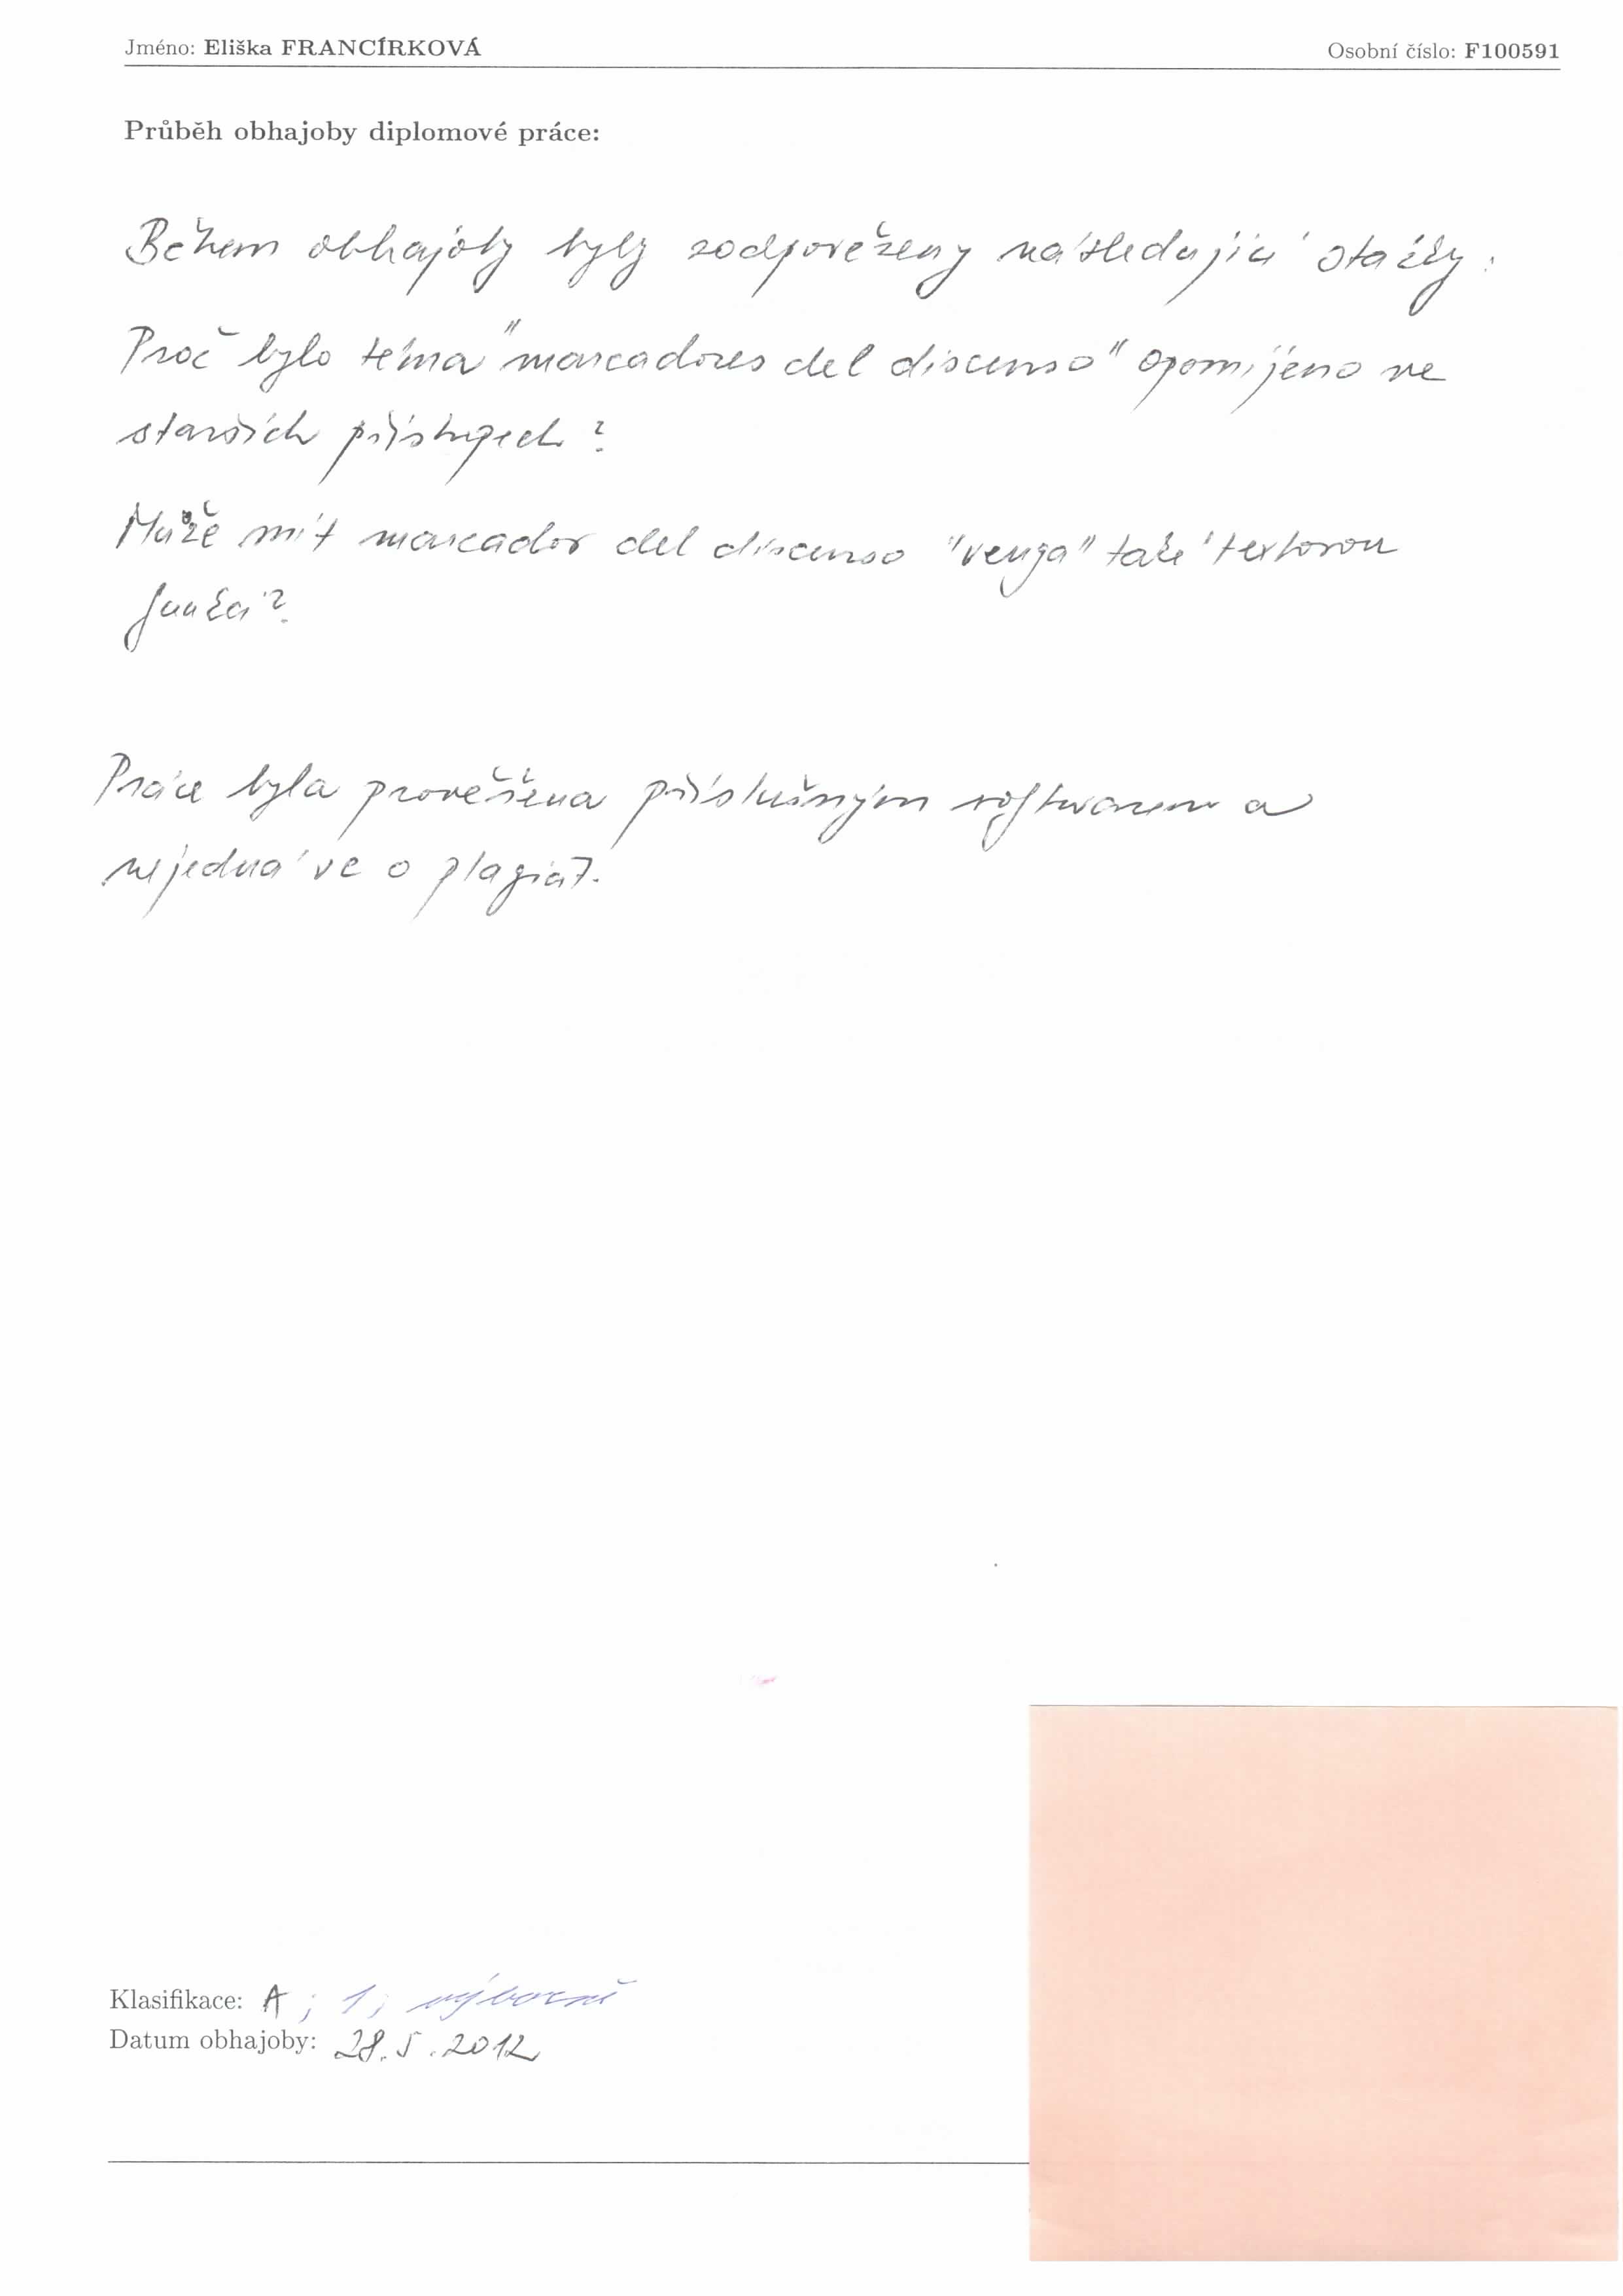 Jméno: Eliška FRANCÍRKOVÁ Osobní číslo: F100591
Průběh obhajoby diplomové práce:
Během obhajoby byly zodpovězeny následující otázky:
Proč bylo téma "marcadores del discurso" opomíjeno ve
starších přístupech?
Může mít marcador del discurso "venga" také textovou
funkci?
Práce byla prověřena příslušným softwarem a
nejedná se o plagiát.
Klasifikace: A; 1; výborně
Datum obhajoby: 28.5.2012